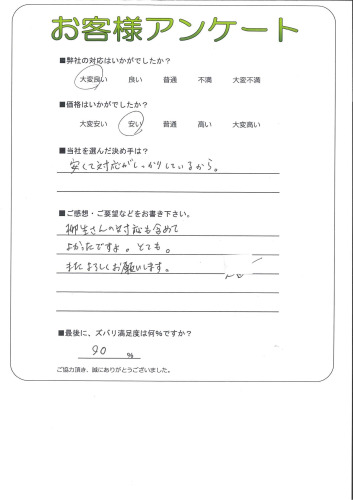 お客様アンケート
■弊社の対応はいかがでしたか?
大変良い 良い 普通 不満 大変不満
■価格はいかがでしたか?
大変安い 安い 普通 高い 大変高い
■当社を選んだ決め手は?
安くて対応がしっかりしているから。
■ご感想・ご要望などをお書き下さい。
柳生さんの対応も含めて
よかったですよ。とても。
またよろしくお願いします。
■最後に、ズバリ満足度は何%ですか?
90 %
ご協力頂き、誠にありがとうございました。